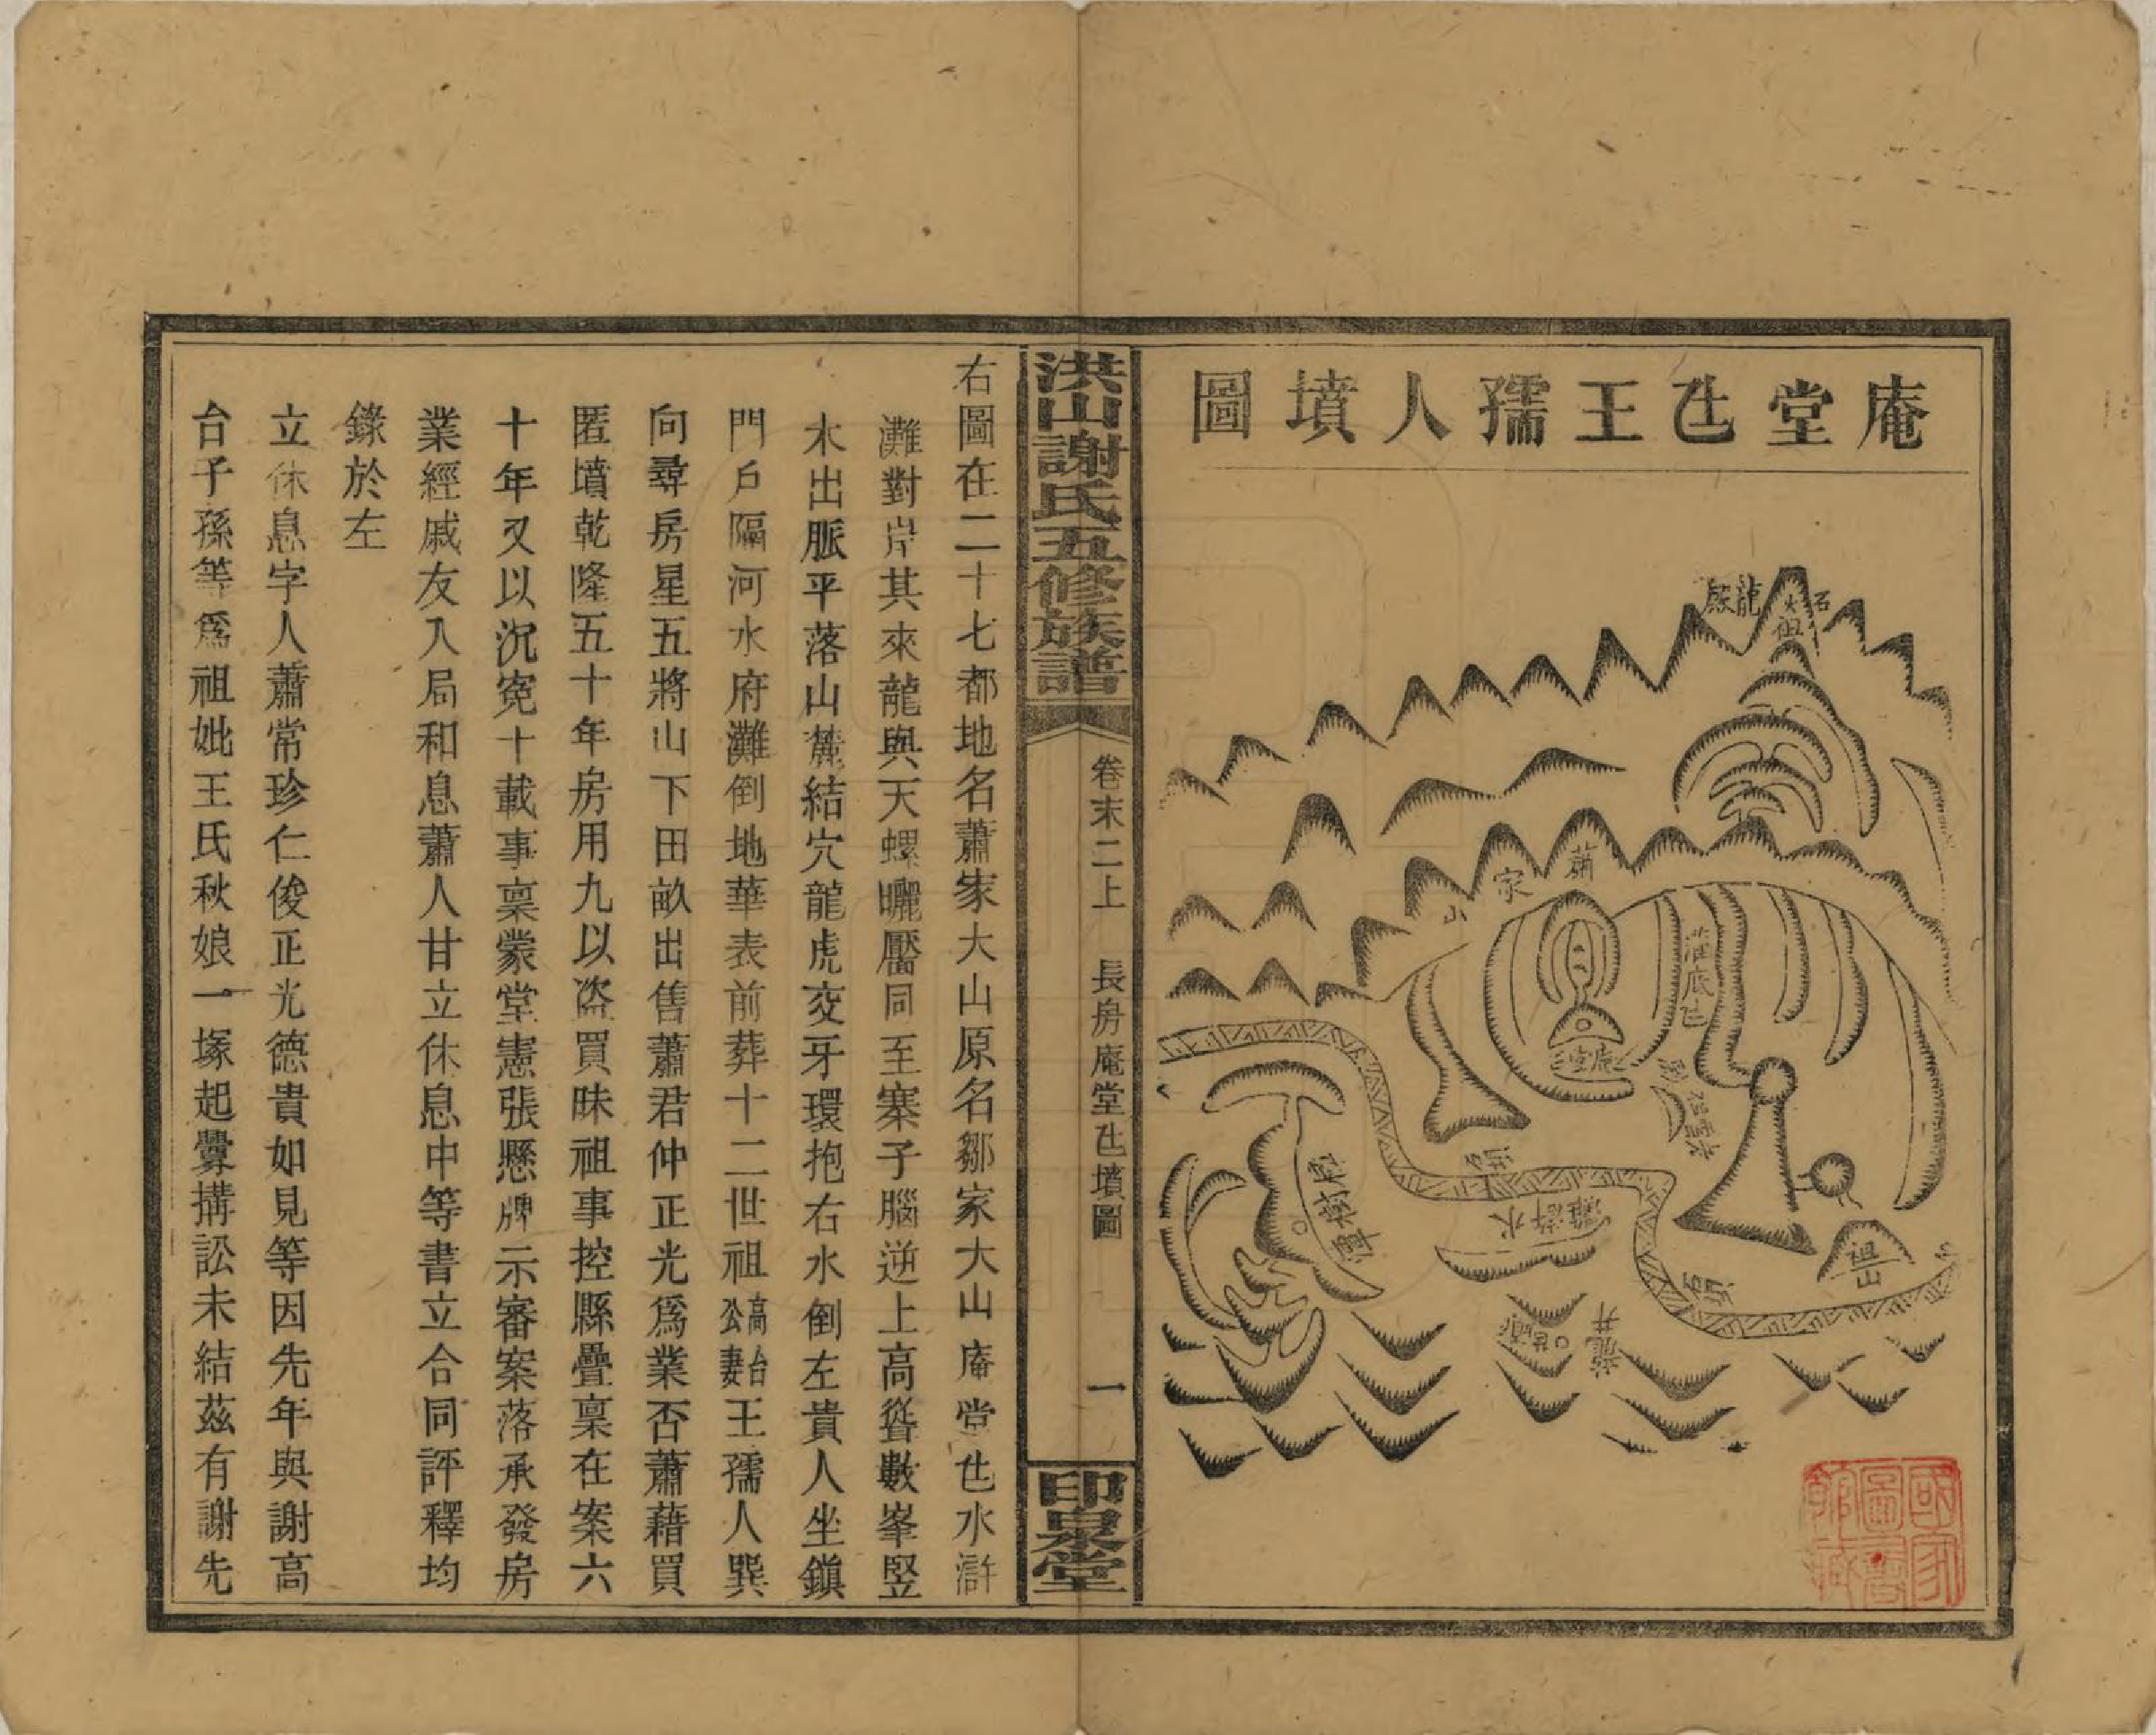 庵堂㐌王孺人墳圖
石
火
祖
龍
蕭
家
山
庵堂
水滸灘
龍井
山
國家圖書館藏
洪山謝氏五修族譜
卷末二上
長房庵堂㐌墳圖
一
印泉堂
右圖在二十七都地名蕭家大山原名鄒家大山庵堂㐌水滸
灘對岸其來龍與天螺曬靨同至寨子腦逆上高聳數峯竪
木出脈平落山麓結穴龍虎交牙環抱右水倒左貴人坐鎭
門戶隔河水府灘倒地華表前葬十二世祖高公台妻王孺人巽
向尋房星五將山下田畝出售蕭君仲正光爲業否蕭藉買
匿墳乾隆五十年房用九以盜買昧祖事控縣疊稟在案六
十年又以沉寃十載事稟蒙堂憲張懸牌示審案落承發房
業經戚友入局和息蕭人甘立休息中等書立合同評釋均
錄於左
立休息字人蕭常珍仁俊正光德貴如見等因先年與謝高
台子孫等爲祖妣王氏秋娘一塚起釁搆訟未結茲有謝先